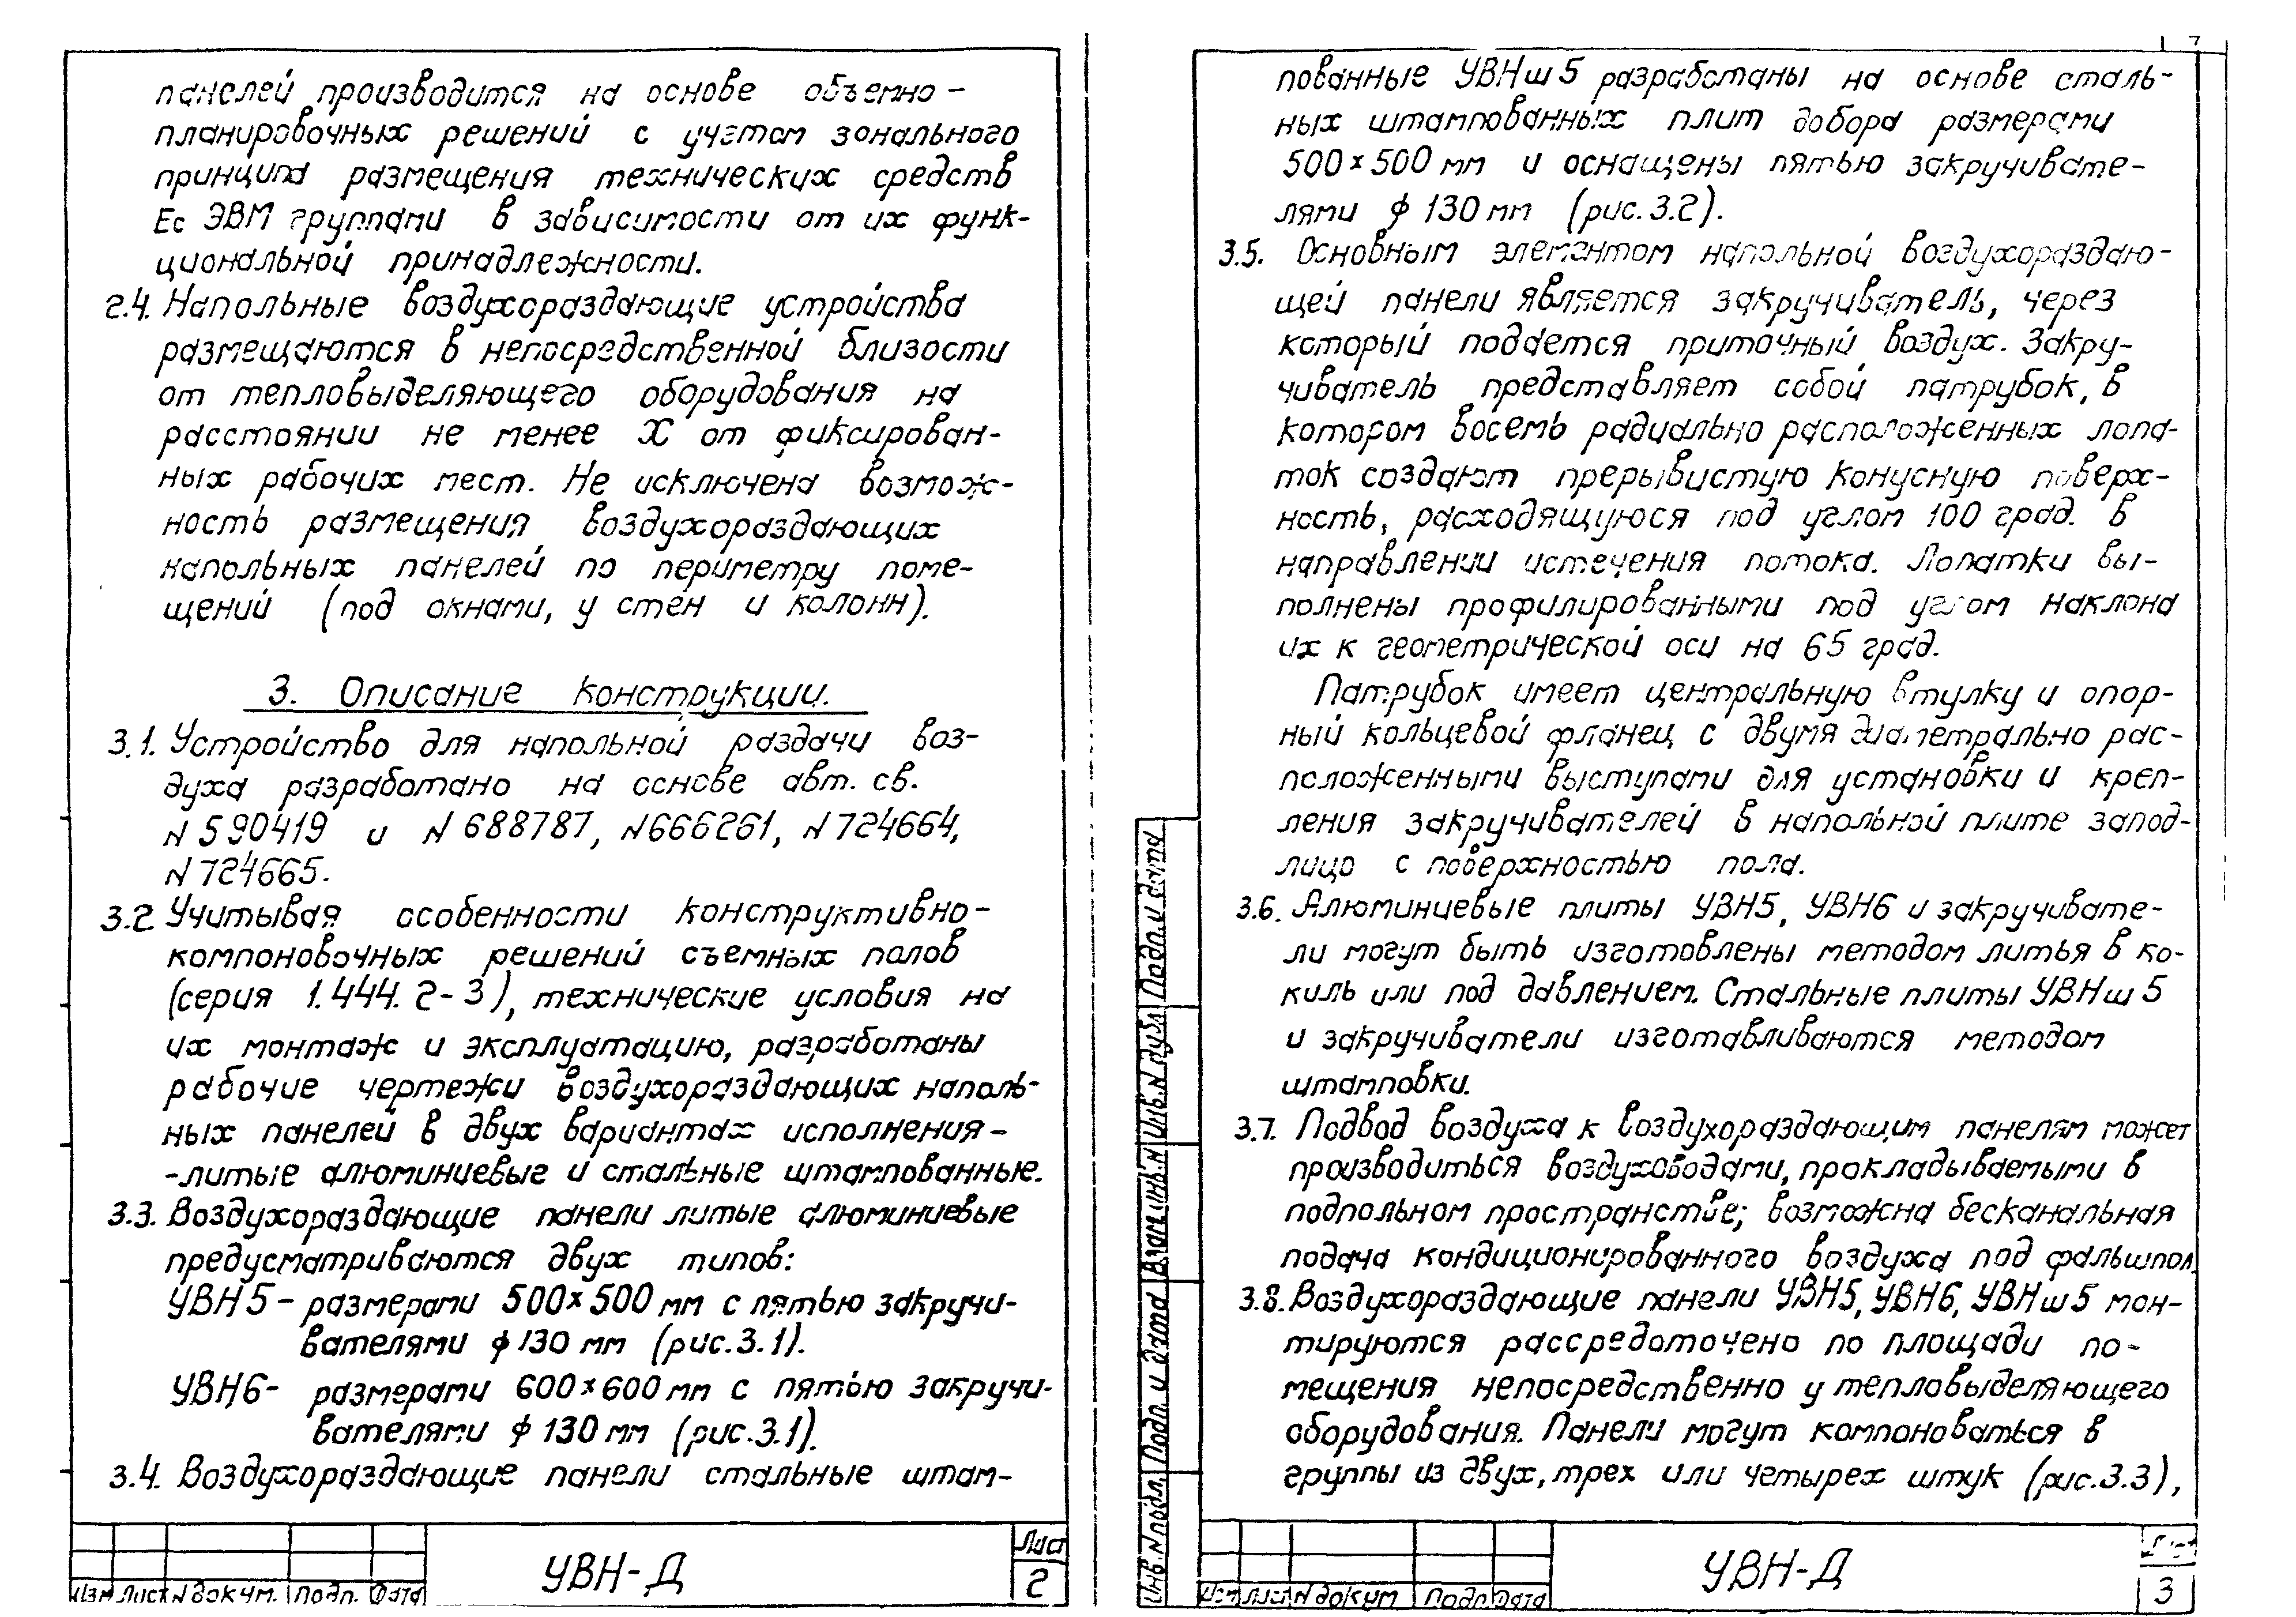 панелей производится на основе объемно-
планировочных решений с учетом зонального
принципа размещения технических средств
Ес ЭВМ группами в зависимости от их функ-
циональной принадлежности.
2.4. Напольные воздухораздающие устройства
размещаются в непосредственной близости
от тепловыделяющего оборудования на
расстоянии не менее X от фиксирован-
ных рабочих мест. Не исключена возмож-
ность размещения воздухораздающих
напольных панелей по периметру поме-
щений (под окнами, у стен и колонн).
3. Описание конструкции.
3.1. Устройство для напольной раздачи воз-
духа разработано на основе авт. св.
N 590419 и N 688787, N 666261, N 724664,
N 724665.
3.2. Учитывая особенности конструктивно-
компоновочных решений съемных полов
(серия 1.444.2-3), технические условия на
их монтаж и эксплуатацию, разработаны
рабочие чертежи воздухораздающих наполь-
ных панелей в двух вариантах исполнения-
-литые алюминиевые и стальные штампованные.
3.3. Воздухораздающие панели литые алюминиевые
предусматриваются двух типов:
УВН5 - размерами 500×500 мм с пятью закручи-
вателями ϕ 130 мм (рис.3.1).
УВН6- размерами 600×600 мм с пятью закручи-
вателями ϕ 130 мм (рис.3.1).
3.4. Воздухораздающие панели стальные штам-
УВН-Д
Лист
2
Изм Лист N докум. Подп. Дата
7
пованные УВНш5 разработаны на основе сталь-
ных штампованных плит добора размерами
500×500 мм и оснащены пятью закручивате-
лями ϕ 130 мм (рис.3.2).
3.5. Основным элементом напольной воздухораздаю-
щей панели является закручиватель, через
который подается приточный воздух. Закру-
чиватель представляет собой патрубок, в
котором восемь радиально расположенных лопа-
ток создают прерывистую конусную поверх-
ность, расходящуюся под углом 100 град. в
направлении истечения потока. Лопатки вы-
полнены профилированными под углом наклона
их к геометрической оси на 65 град.
Патрубок имеет центральную втулку и опор-
ный кольцевой фланец с двумя диаметрально рас-
положенными выступами для установки и креп-
ления закручивателей в напольной плите запод-
лицо с поверхностью пола.
3.6. Алюминиевые плиты УВН5, УВН6 и закручивате-
ли могут быть изготовлены методом литья в ко-
киль или под давлением. Стальные плиты УВНш5
и закручиватели изготавливаются методом
штамповки.
3.7. Подвод воздуха к воздухораздающим панелям может
производиться воздуховодами, прокладываемыми в
подпольном пространстве; возможна бесканальная
подача кондиционированного воздуха под фальшпол.
3.8. Воздухораздающие панели УВН5, УВН6, УВНш5 мон-
тируются рассредоточено по площади по-
мещения непосредственно у тепловыделяющего
оборудования. Панели могут компоноваться в
группы из двух, трех или четырех штук (рис.3.3),
Инв.N подл. Подп. и дата Взам.инв.N Инв.N дубл Подп.и дата
УВН-Д
Лист
3
Изм Лист N докум Подп Дата